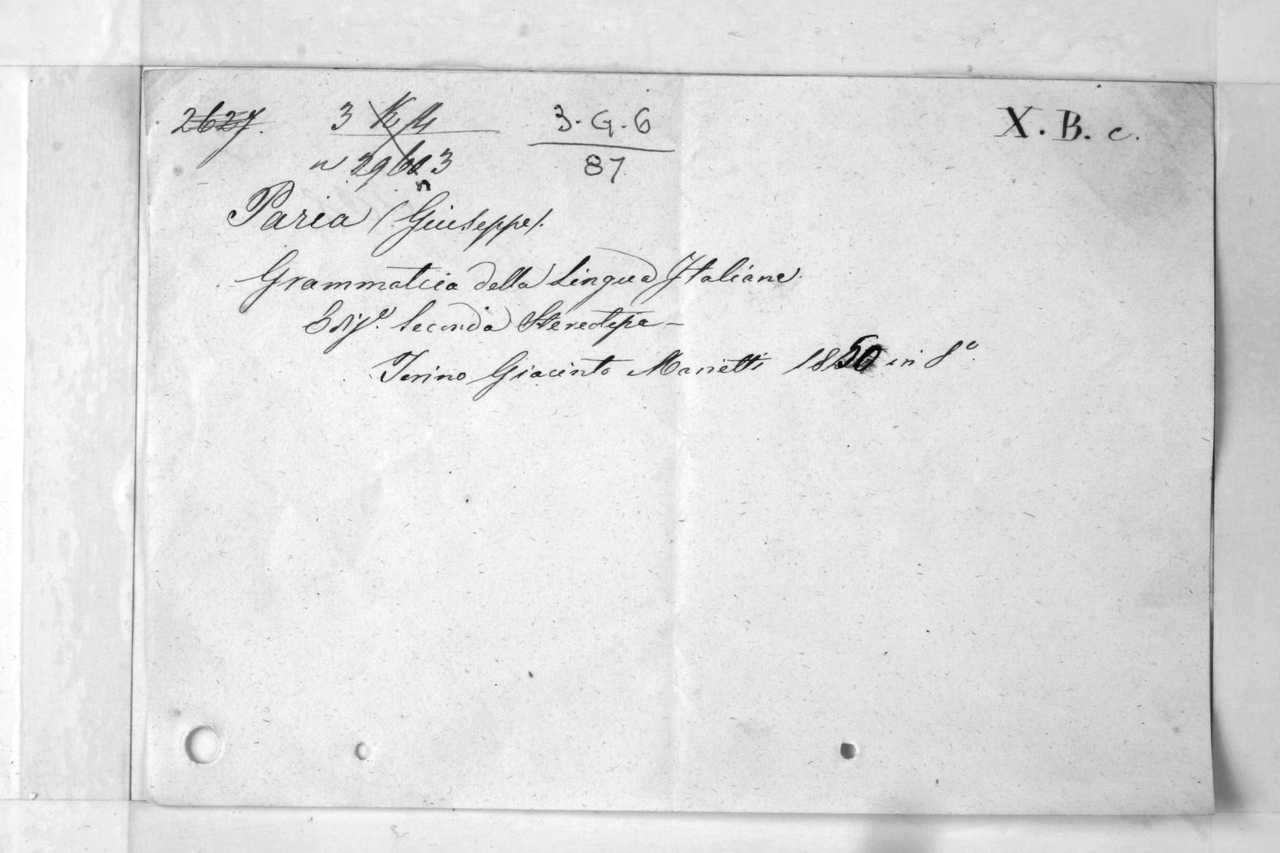 2627. 3 K 4 3. G. 6 X. B. c.
87
Paria (Giuseppe).
Grammatica della Lingua Italiana.
Ediz.e Seconda Stereotipa —
Torino Giacinto Marietti 1850 in 8º.